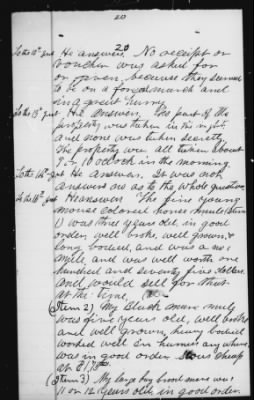 20
20
To the 12th qust He answers. No receipt or
voucher was asked for
or given, because they seemed
to be on a forced march and
in a great hurry.
To the 13th qust He answers. No part of the
property was taken in the night
and none was taken secretly
The property was all taken about
9 or 10 oclock in the morning.
To the 14th qust He answers. It was not
answers no as to the whole question
To the 18th qust He answers. The fine young
mouse colored horse mule (Item
1) was three years old, in good
order, well broke, well grown,
long bodied, and was a no 1
mule, and was well worth one
hundred and seventy five dollars.
and would sell for that
at the time,
(Item 2) My Black mare mule
was five years old, well broke
and well grown, heavy bodied
worked well in harness anywhere
was in good order cheap
at $175.00
(Item 3) My large bay brood mare was
11 or 12 years old, in good order.